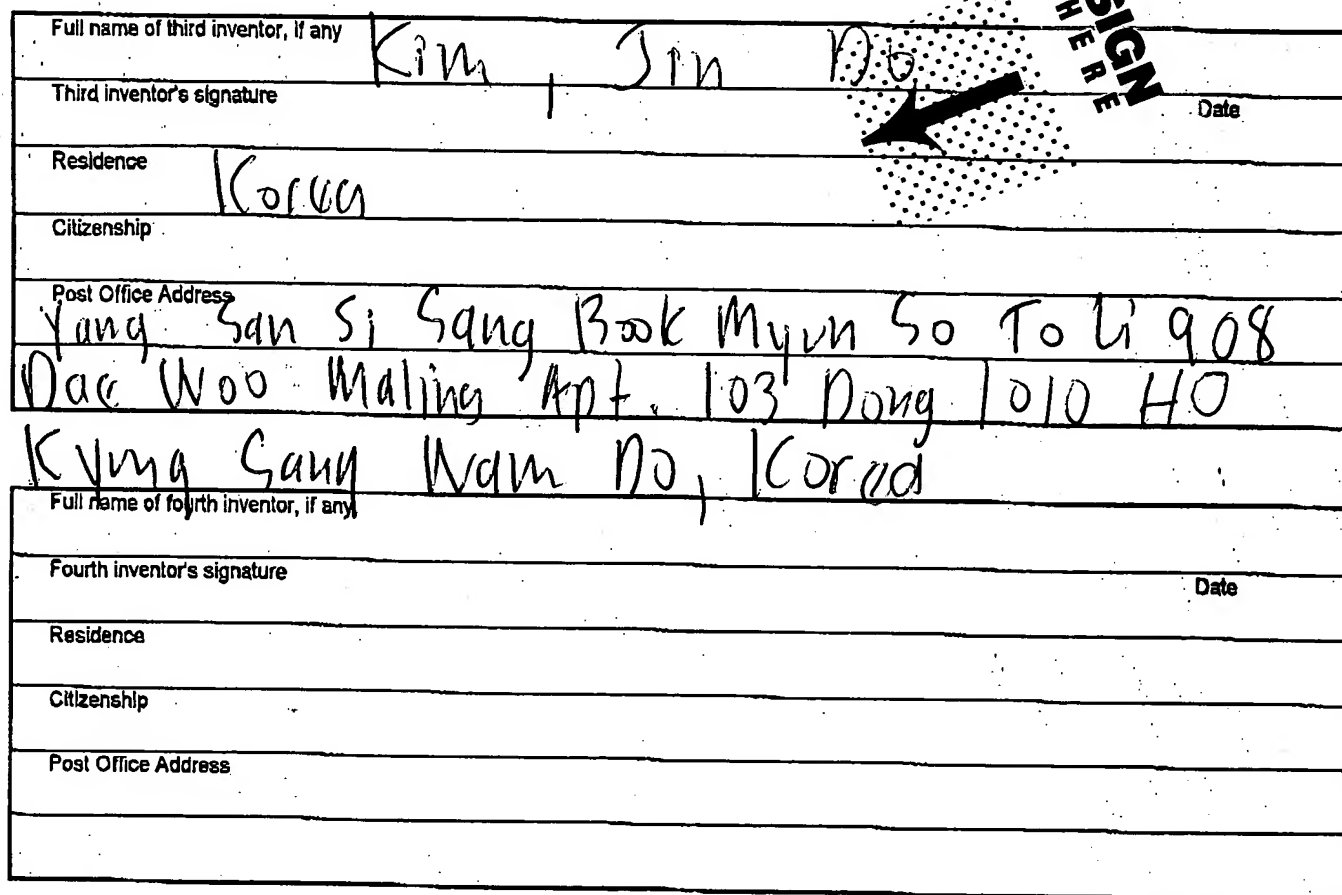 Full name of third inventor, if any Kim, Jin Do
SIGN HERE
Third inventor's signature Date
Residence Korea
Citizenship
Post Office Address
Yang San Si Sang Book Myun So To Li 908
Dae Woo Maling Apt. 103 Dong 1010 HO
Kyung Sang Nam Do, Korea
Full name of fourth inventor, if any
Fourth inventor's signature Date
Residence
Citizenship
Post Office Address